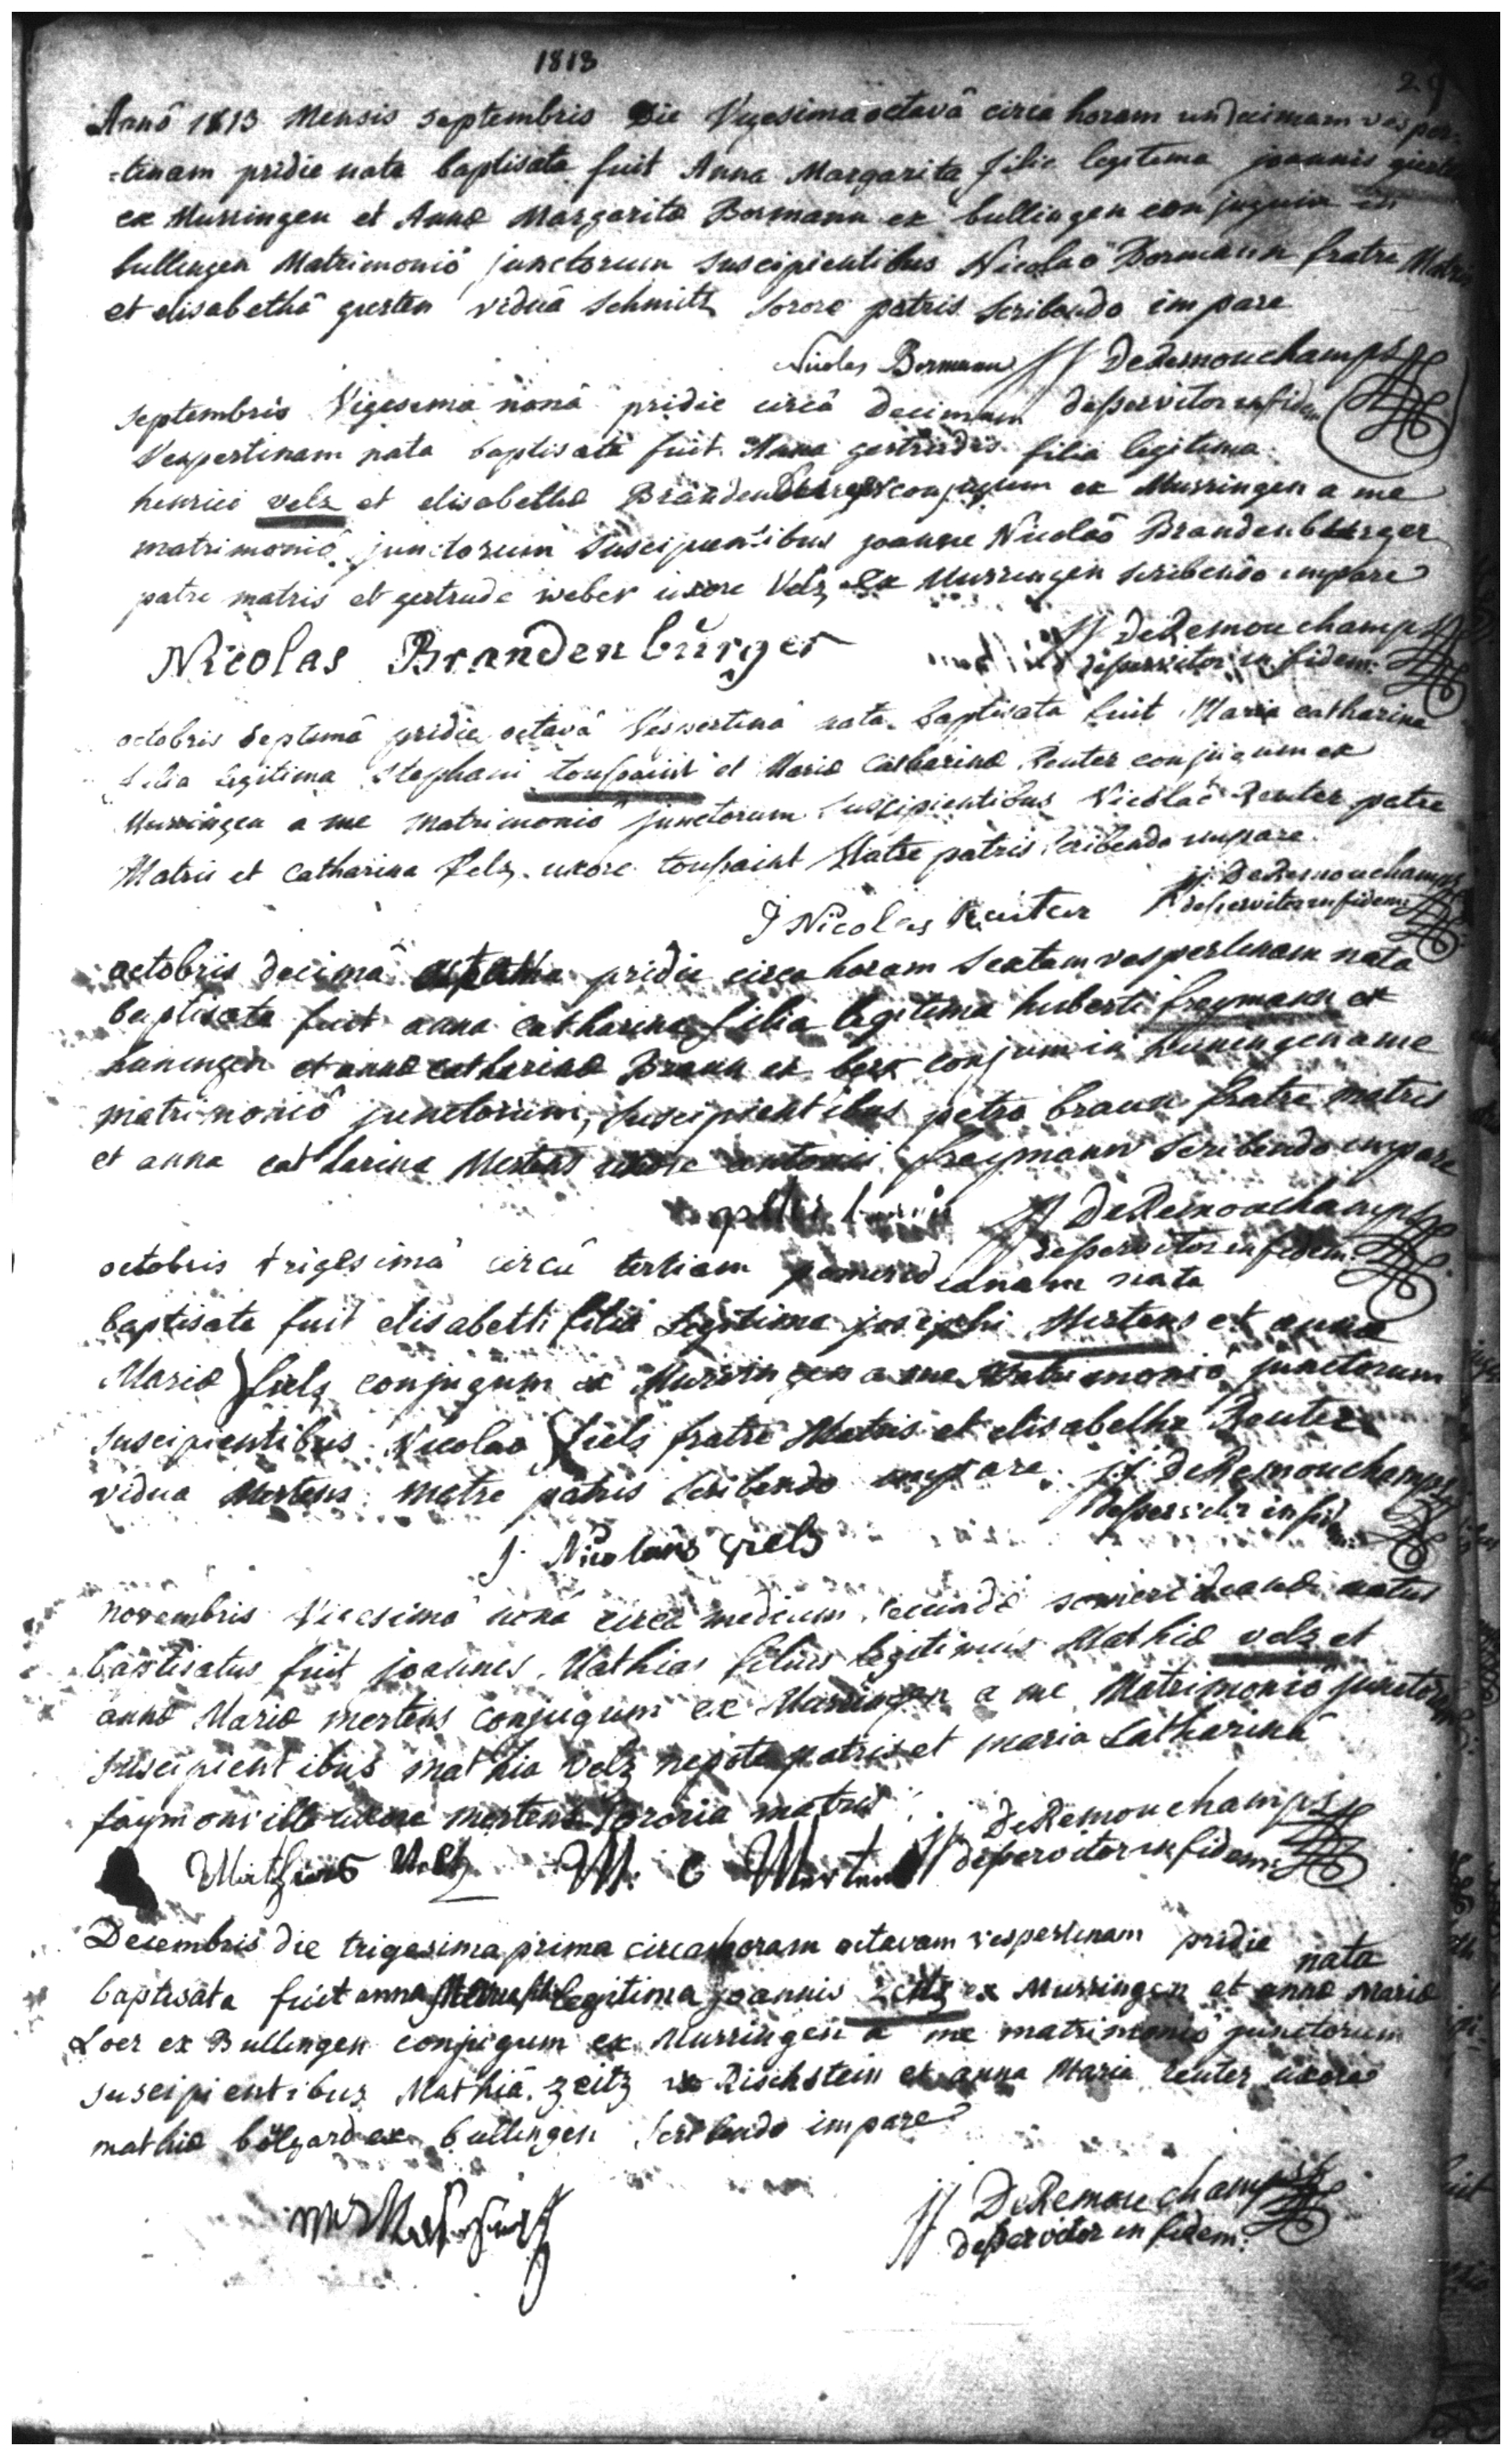 1813
29
Anno 1813 Mensis Septembris Die Vigesima octavâ circa horam undecimam vesper=
=tinam pridie nata baptisata fuit Anna Margarita filia legitima joannis
ex Murringen et Annæ Margaritæ Bormann ex bullingen conjugum in
bullingen Matrimoniô junctorum suscipientibus Nicolaô Bormann fratre Matris
et elisabethâ gierten viduâ Schmitz sorore patris scribendo impare
Nicolas Bormann JJ DeRemouchamps
deservitor in fidem
septembris Vigesima nonâ pridie circâ Decimam
Vespertinam nata baptisata fuit Anna gertrudis filia legitima
henrici velz et elisabethæ Brandenburger conjugum ex Murringen a me
matrimoniô junctorum suscipientibus joanne Nicolaô Brandenburger
patre matris et gertrude weber uxore Velz ex Murringen scribendo impare
Nicolas Brandenbürger
JJ DeRemouchamps
deservitor in fidem:
octobris septimâ pridie octavâ Vespertinâ nata baptisata fuit Maria catharina
filia legitima Stephani toussaint et Mariæ Catharinæ Reuter conjugum ex
Murringen a me matrimoniô junctorum suscipientibus Nicolaô Reuter patre
Matris et Catharina Velz uxore toussaint Matre patris scribendo impare
JJ DeRemouchamps
J Nicolas Reuter deservitor in fidem
octobris decimâ pridie circa horam sextam vespertinam nata
baptisata fuit anna catharina filia legitima huberti freymann ex
huningen et annæ catharinæ Braun ex conjum in huningen a me
matrimoniô junctorum, suscipientibus petro braun fratre matris
et anna catharina Mertens uxore antonii freymann scribendo impare
peter JJ DeRemouchamps
deservitor in fidem:
octobris trigesimâ circâ tertiam pomeridianam nata
baptisata fuit elisabeth filia legitima josephi Mertens et annæ
Mariæ fielz conjugum ex Murringen a me Matrimoniô junctorum
suscipientibus Nicolao fielz fratre Matris et elisabetha Reuter
vidua Mertens matre patris scribendo impare. JJ DeRemouchamps
deservitor in fidem
J. Nicolaus
novembris Vicesimâ nonâ circâ mediam secundæ natus
baptisatus fuit joannes Mathias filius legitimus Mathiæ velz et
annæ Mariæ mertens conjugum ex Murringen a me Matrimoniô junctorum
suscipientibus mathia Velz nepote patris et maria Catharinâ
faymonville uxore mertens sororia matris
JJ DeRemouchamps
Mathias Velz M. C Mertens deservitor in fidem:
Decembris die trigesima prima circa horam octavam vespertinam pridie
nata
baptisata fuit anna legitima joannis Zeitz ex Murringen et annæ Mariæ
Loer ex Bullingen conjugum ex Murringen a me matrimoniô junctorum
suscipientibus Mathiâ zeitz ex Rischstein et anna Maria reuter uxore
mathiæ bölgard ex bullingen scribendo impare
JJ DeRemouchamps
deservitor in fidem: